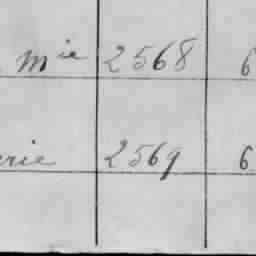 mie 2568 6
erie 2569 6